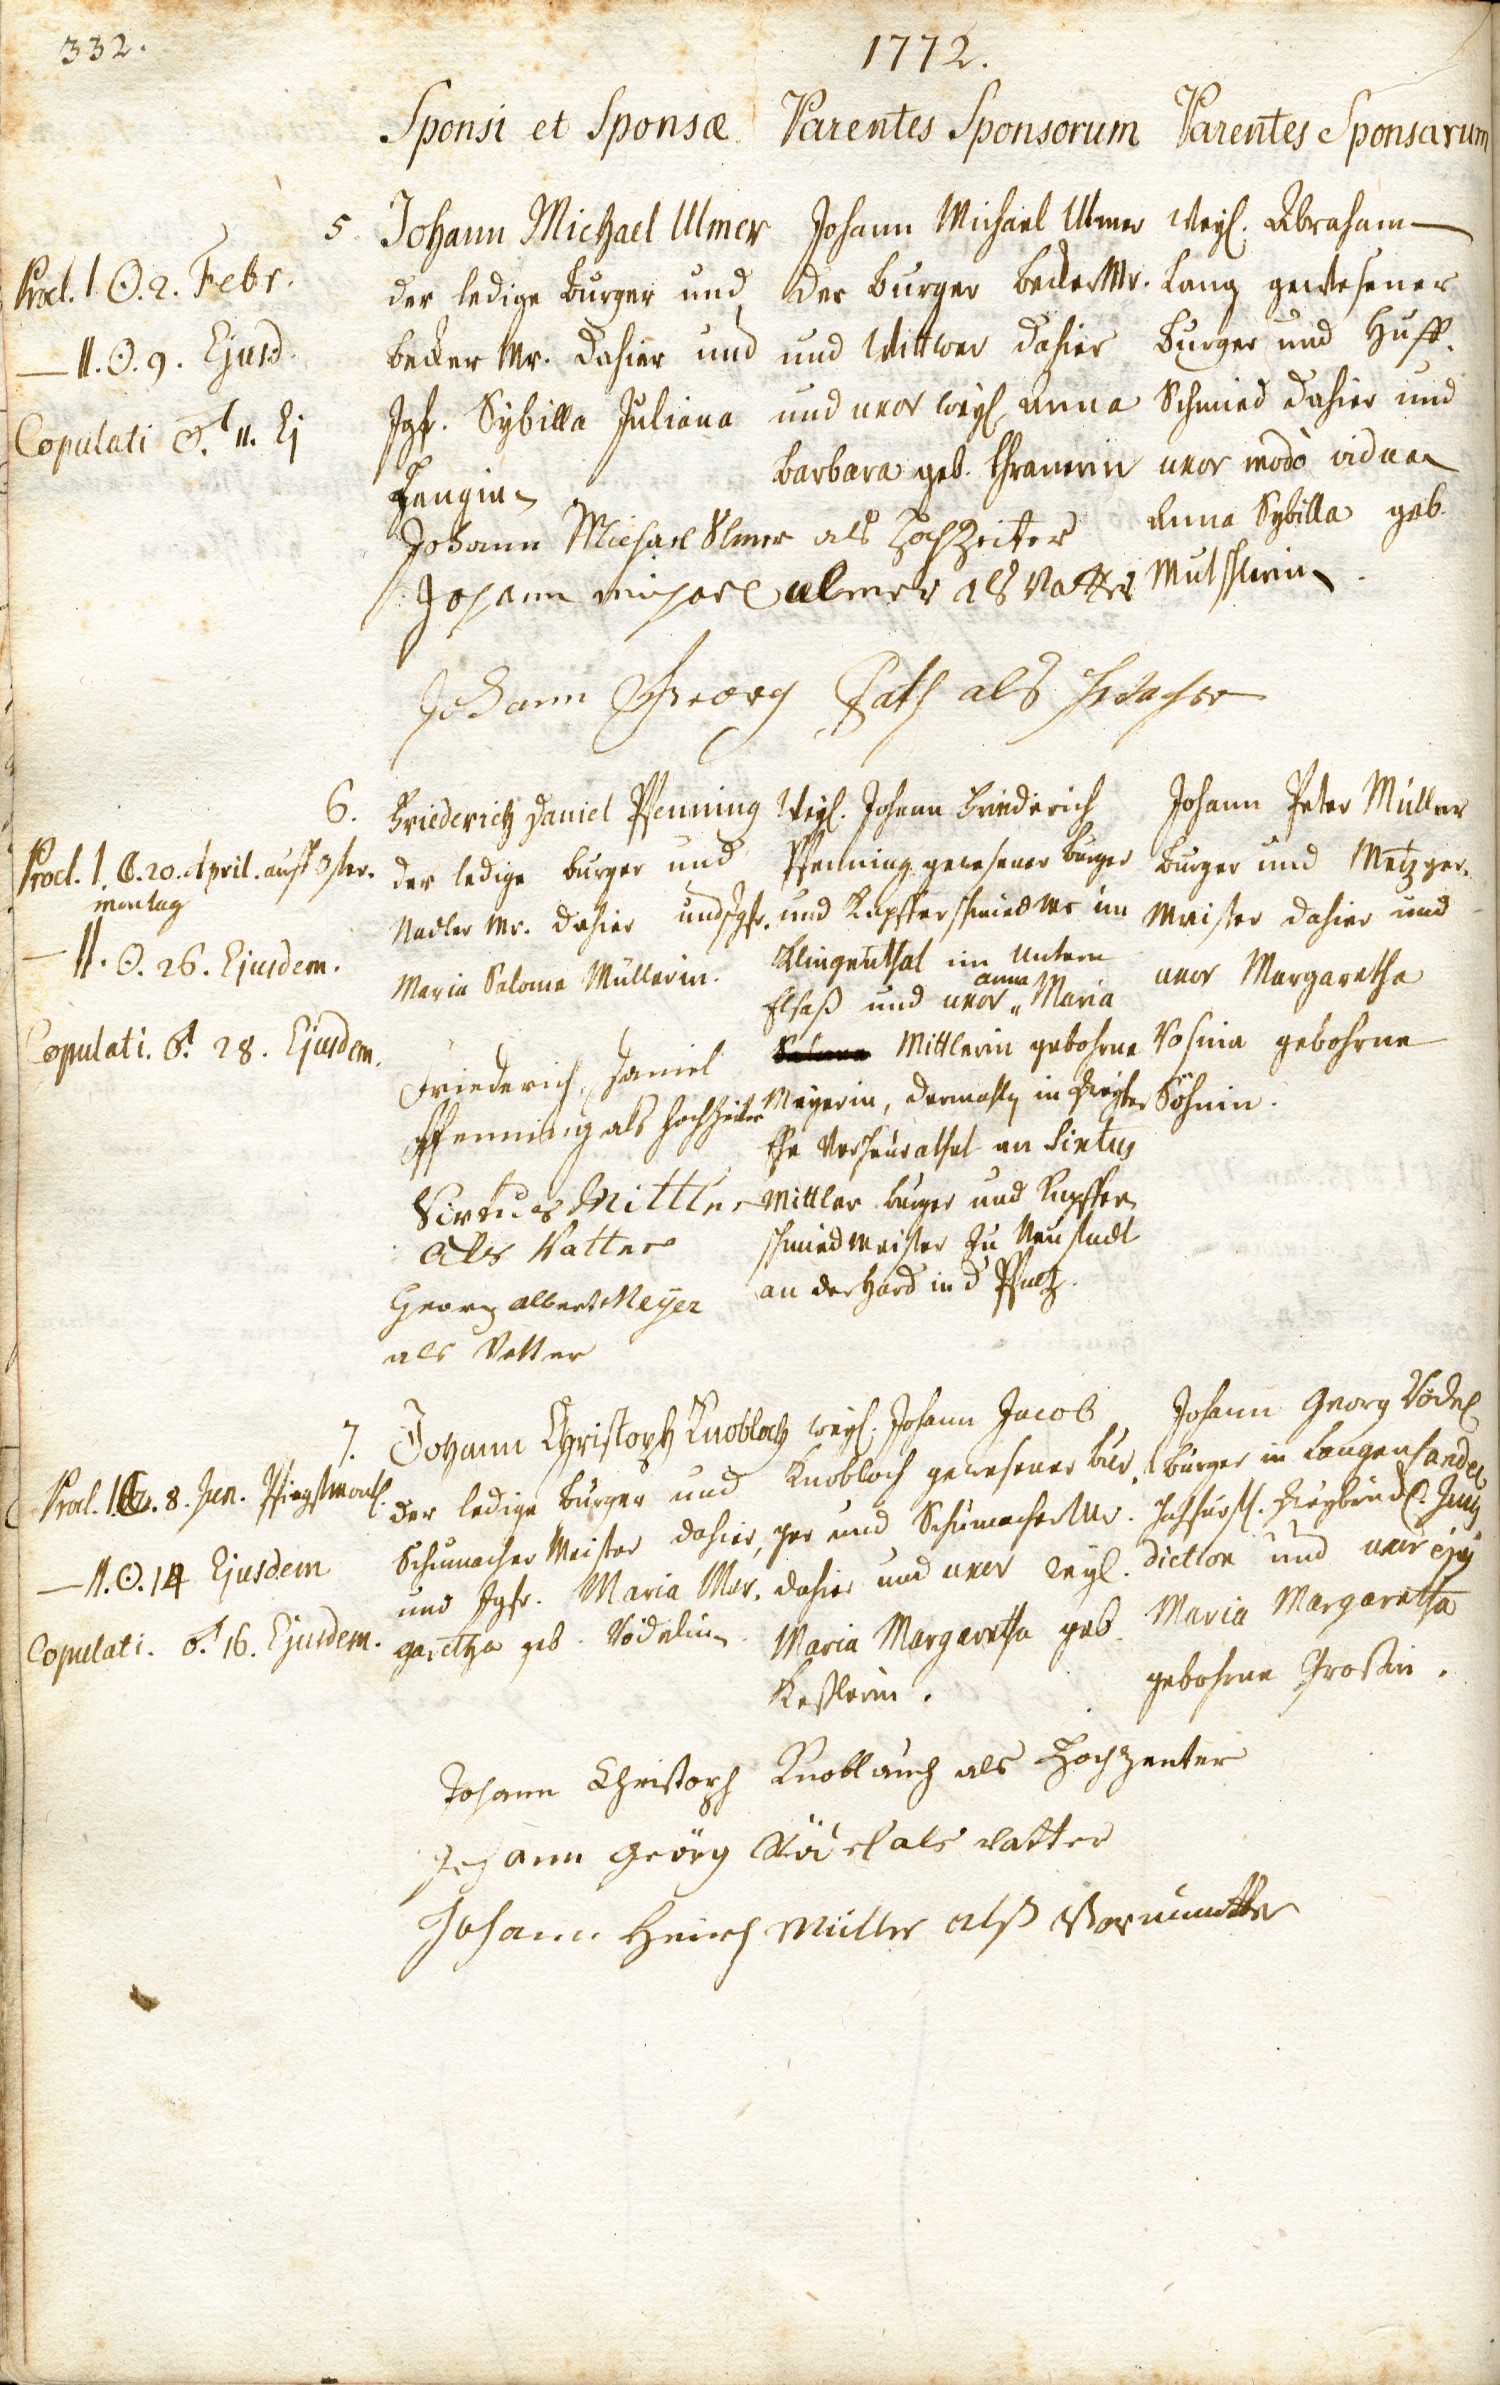 332.
1772.
Sponsi et Sponsæ
Parentes Sponsorum
Parentes Sponsarum
5.
Procl. I. ☉. 2. Febr.
— II. ☉. 9. Ejusd.
Copulati ♂. 11. Ej
Johann Michael Ulmer
der ledige burger und
becker Mr. dahier und
Jgfr. Sybilla Juliana
Langin
Johann Michael Ulmer
der burger becker Mr.
und Wittwer dahier
und uxor weyl. Anna
barbara geb.
Weyl. Abraham
Lang gewesener
burger und Huff-
Schmied dahier und
uxor modò vidua
Anna Sybilla geb.
Mutschlerin
Johann Michael Ulmer als Hochzeiter
Johann michael ulmer als Vatter
Johann Georg als
6.
Procl. I. 20. April. auf Oster-
montag
— II. ☉. 26. Ejusdem.
Copulati. ♂. 28. Ejusdem.
Friederich Daniel Pfenning
der ledige burger und
Nadler Mr. dahier und Jgfr.
Maria Salome Müllerin.
Weyl. Johann Friederich
Pfenning gewesener burger
und Kupfferschmied Mr im
Klingenthal im Untern
Elsaß und uxor anna Maria
Mittlerin gebohrne
Meyerin, dermahlen in
Ehe verheurathet an Sixtus
Mittler burger und Kupffer-
schmied Meister zu Neustadt
an der Hard in d. Pfaltz.
Johann Peter Müller
burger und Metzger-
Meister dahier und
uxor Margaretha
Rosina gebohrne
Söhnin.
Friederich Daniel
Pfenning als Hochzeiter
Sixtus Mittler
als Vatter
Georg Albert Meyer
als Vetter
7.
Procl. I. 8. Jun. Pfingstmont.
— II. ☉. 14 Ejusdem
Copulati. ♂. 16. Ejusdem.
Johann Christoph Knobloch
der ledige burger und
Schumacher Meister dahier,
und Jgfr. Maria Mar-
garetha geb. Vödelin
weyl. Johann Jacob
Knobloch gewesener bur-
ger und Schumacher Mr.
dahier und uxor weyl.
Maria Margaretha geb.
Keßlerin.
Johann Georg Vödel
burger in Langensandel
diction und uxor ejus
Maria Margaretha
gebohrne Großin.
Johann Christoph Knoblauch als Hochzeuter
Johann Georg als Vatter
Johann Heinrich Müller alß Vormundter